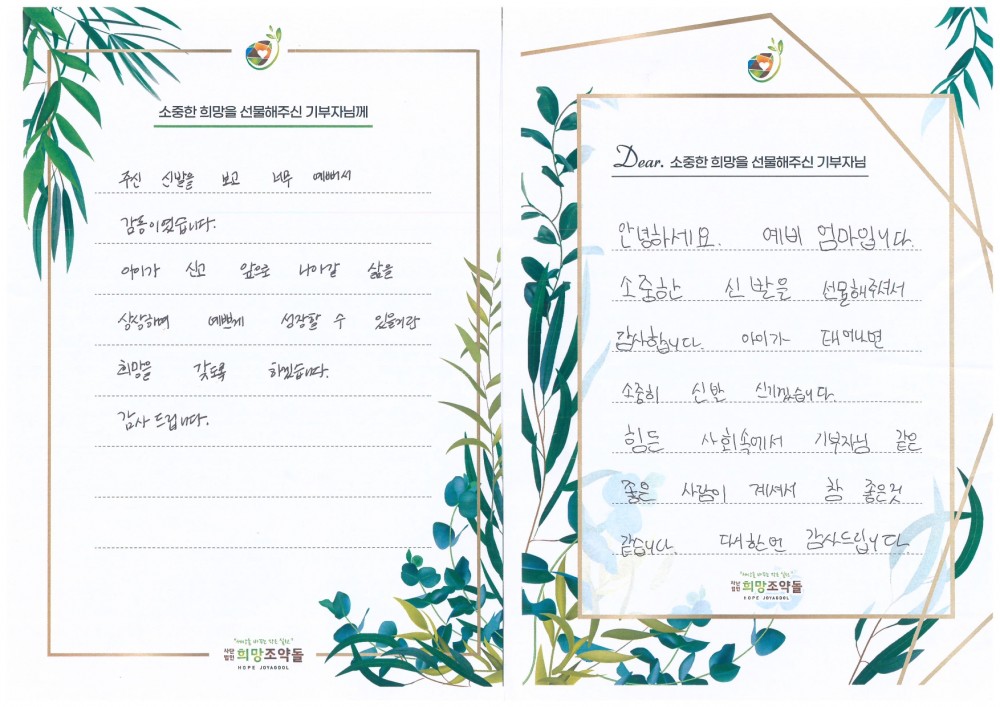 소중한 희망을 선물해주신 기부자님께
주신 신발을 보고 너무 예뻐서
감동이었습니다.
아이가 신고 앞으로 나아갈 삶을
상상하며 예쁘게 성장할 수 있을거란
희망을 갖도록 하겠습니다.
감사 드립니다.
사단법인 희망조약돌
HOPE JOYAGDOL
Dear. 소중한 희망을 선물해주신 기부자님
안녕하세요. 예비 엄마입니다.
소중한 신발을 선물해주셔서
감사합니다. 아이가 태어나면
소중히 신발 신기겠습니다
힘든 사회속에서 기부자님 같은
좋은 사람이 계셔서 참 좋은것
같습니다. 다시한번 감사드립니다
"세상을 바꾸는 작은 힘"
사단법인 희망조약돌
HOPE JOYAGDOL